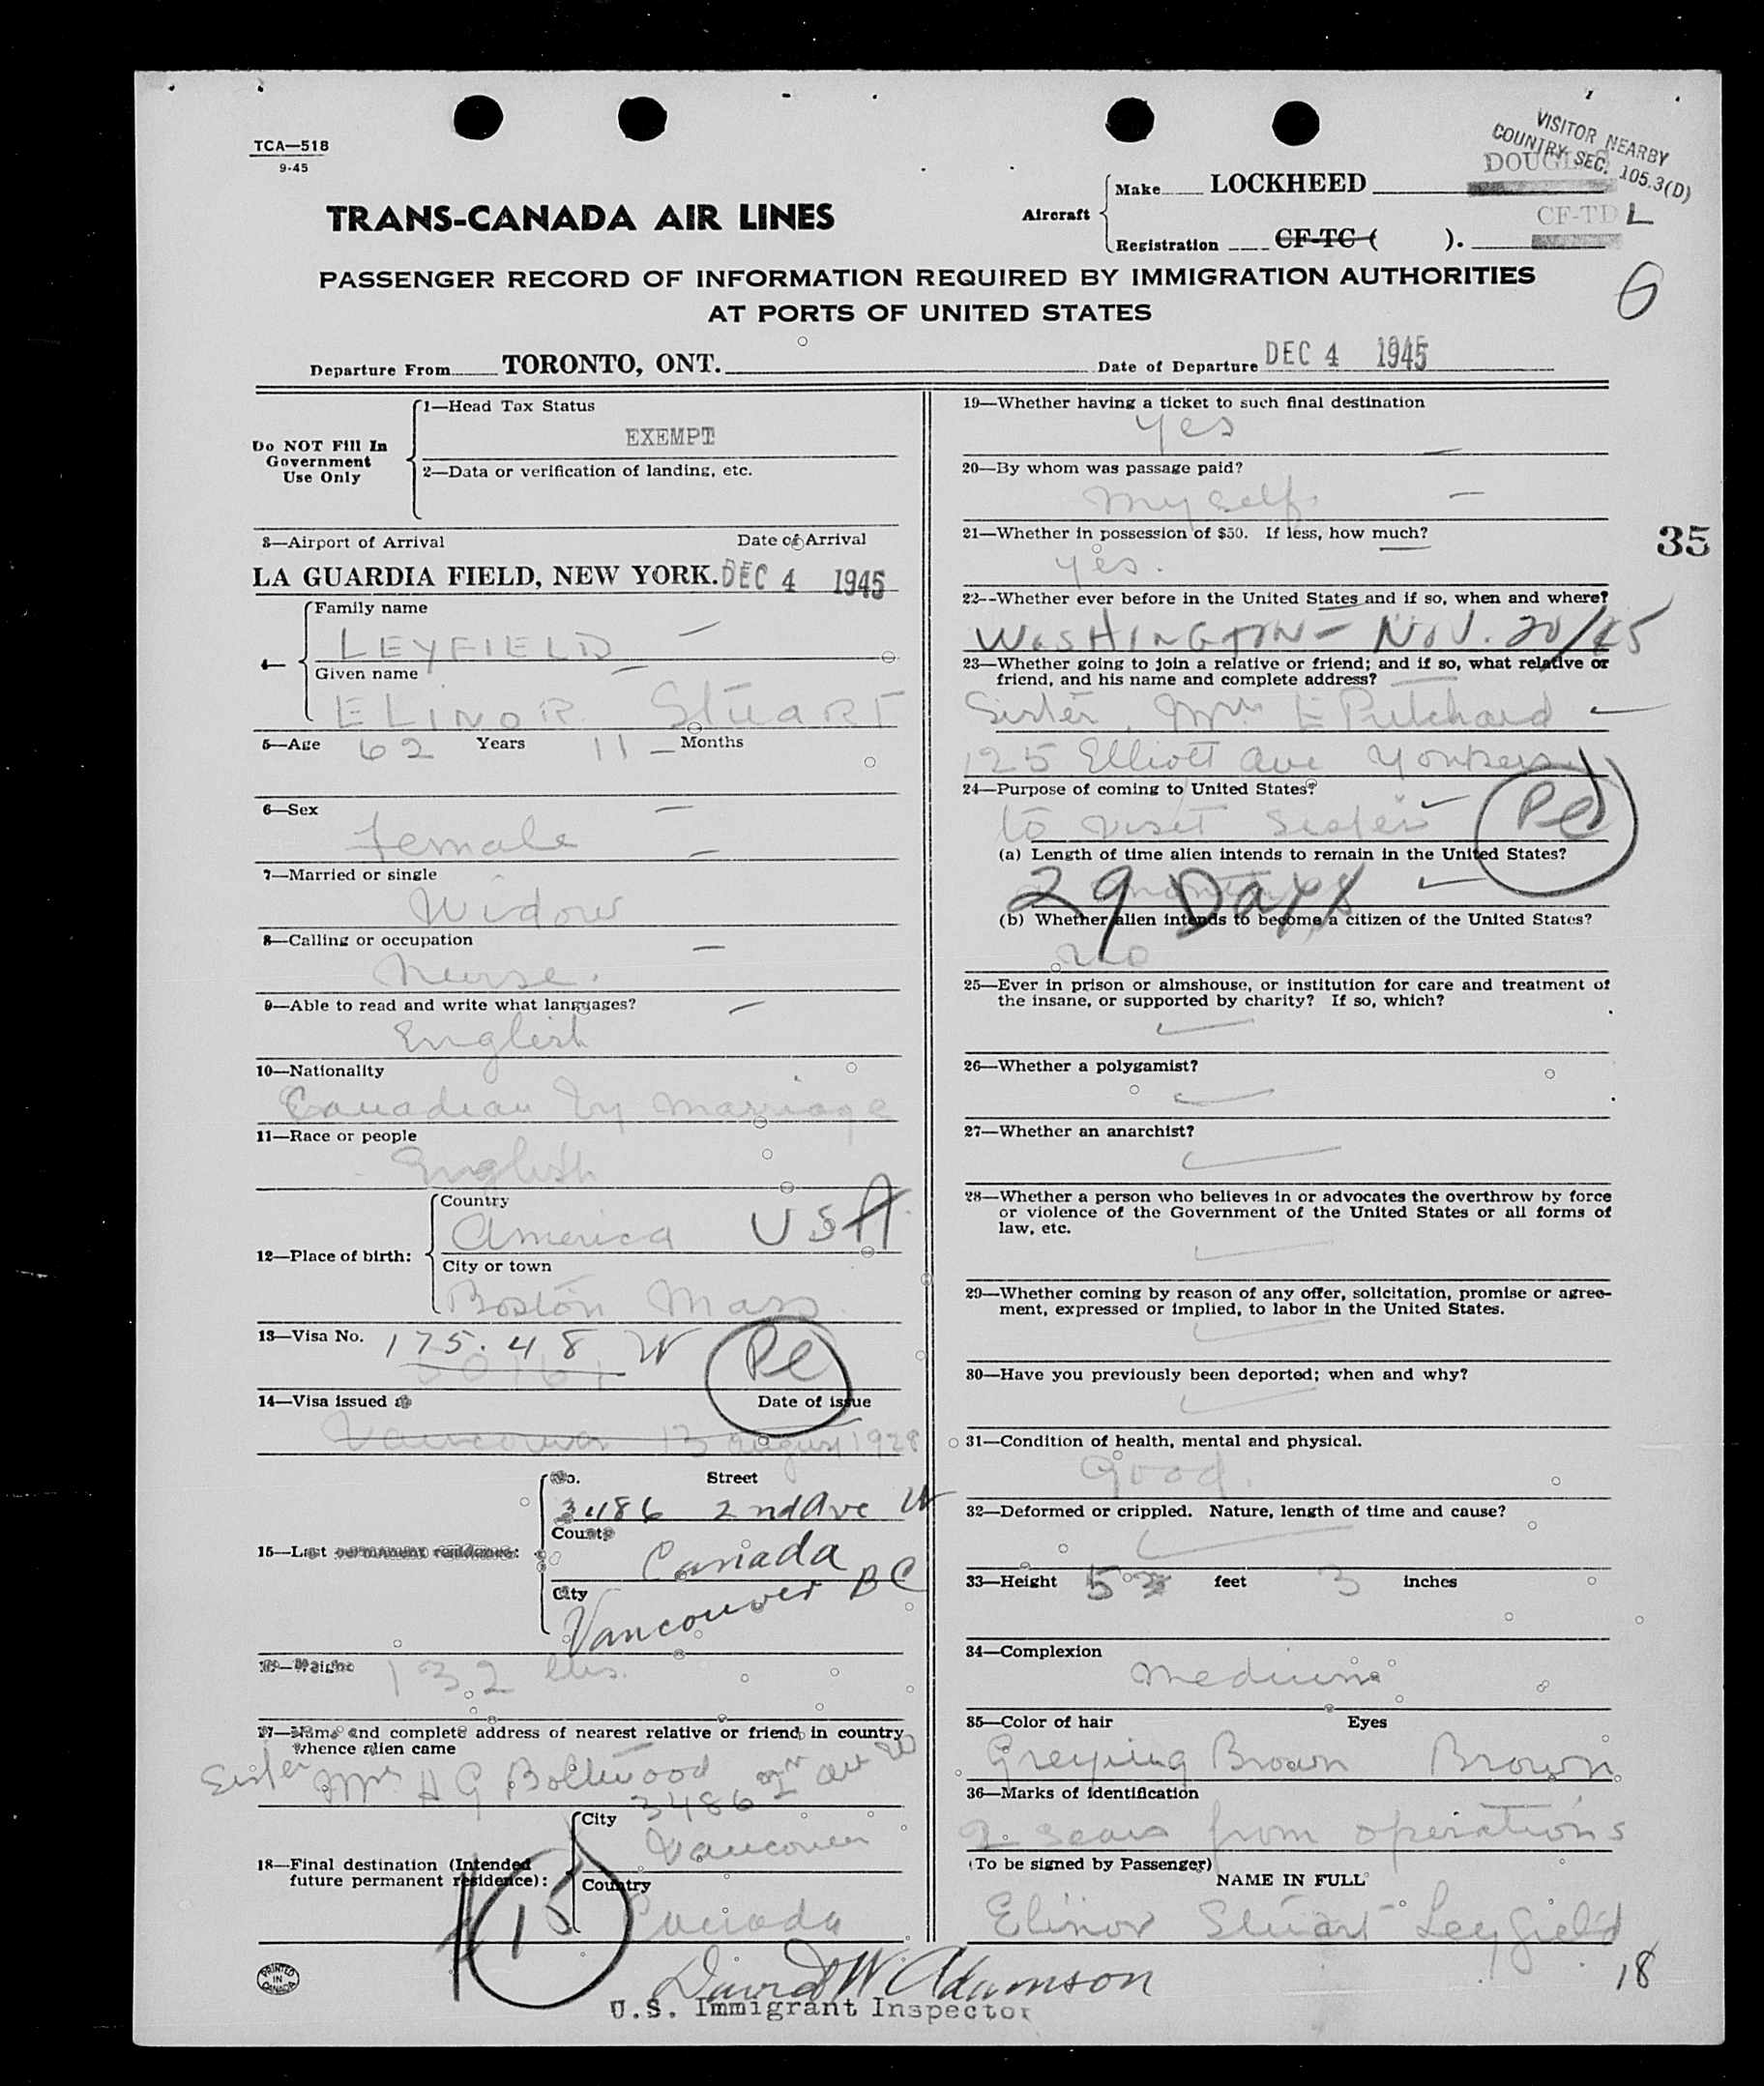 TCA—518
9-45
VISITOR NEARBY
COUNTRY SEC. 105.3(D)
TRANS-CANADA AIR LINES
Aircraft
Make LOCKHEED
Registration CF-TC ( ). CF-TD L
PASSENGER RECORD OF INFORMATION REQUIRED BY IMMIGRATION AUTHORITIES
AT PORTS OF UNITED STATES
6
Departure From TORONTO, ONT.
Date of Departure DEC 4 1945
Do NOT Fill In
Government
Use Only
1—Head Tax Status
EXEMPT
2—Data or verification of landing, etc.
3—Airport of Arrival Date of Arrival
LA GUARDIA FIELD, NEW YORK. DEC 4 1945
4—
Family name
LEYFIELD
Given name
ELINOR STUART
5—Age 62 Years 11 Months
6—Sex
Female
7—Married or single
Widow
8—Calling or occupation
Nurse.
9—Able to read and write what languages?
English
10—Nationality
Canadian by marriage
11—Race or people
English
12—Place of birth:
Country
America USA
City or town
Boston Mass.
13—Visa No. 175.48 W
14—Visa issued Date of issue
Vancouver 13 August 1928
15—Last permanent residence:
No. Street
3486 2nd Ave W
Country
Canada
City
Vancouver BC
16—Weight 132 lbs.
17—Name and complete address of nearest relative or friend in country
whence alien came
Sister Mrs H G Boltwood
3486 2nd Ave W
18—Final destination (Intended
future permanent residence):
City
Vancouver
Country
Canada
19—Whether having a ticket to such final destination
Yes
20—By whom was passage paid?
Myself.
21—Whether in possession of $50. If less, how much?
Yes.
35
22—Whether ever before in the United States and if so, when and where?
WASHINGTON - NOV. 20/45
23—Whether going to join a relative or friend; and if so, what relative or
friend, and his name and complete address?
Sister Mrs E Pritchard
125 Elliott Ave Yonkers
24—Purpose of coming to United States?
to visit sister
(a) Length of time alien intends to remain in the United States?
29 Days
(b) Whether alien intends to become a citizen of the United States?
no
25—Ever in prison or almshouse, or institution for care and treatment of
the insane, or supported by charity? If so, which?
26—Whether a polygamist?
27—Whether an anarchist?
28—Whether a person who believes in or advocates the overthrow by force
or violence of the Government of the United States or all forms of
law, etc.
29—Whether coming by reason of any offer, solicitation, promise or agree-
ment, expressed or implied, to labor in the United States.
30—Have you previously been deported; when and why?
31—Condition of health, mental and physical.
Good.
32—Deformed or crippled. Nature, length of time and cause?
33—Height 5 feet 3 inches
34—Complexion
Medium
35—Color of hair Eyes
Greying Brown Brown
36—Marks of identification
2 scars from operations
(To be signed by Passenger)
NAME IN FULL
Elinor Stuart Leyfield
18
PRINTED
IN
CANADA
David W. Adamson
U.S. Immigrant Inspector